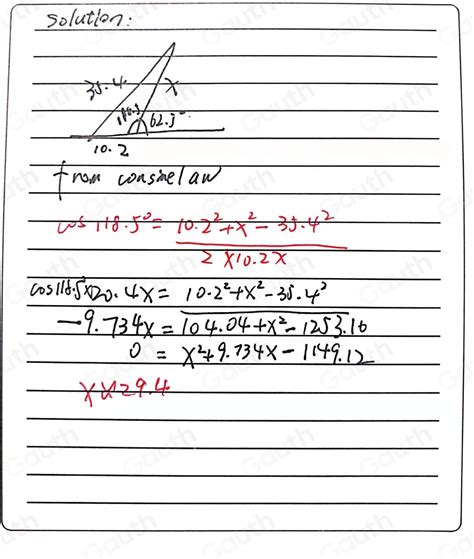 Solution:
35.4
x
118.5
62.5°
10.2
from consine law
cos 118.5° = 10.2² + x² - 35.4²
2×10.2x
cos118.5°×20.4x = 10.2² + x² - 35.4²
-9.734x = 104.04 + x² - 1253.16
0 = x² + 9.734x - 1149.12
x≈29.4